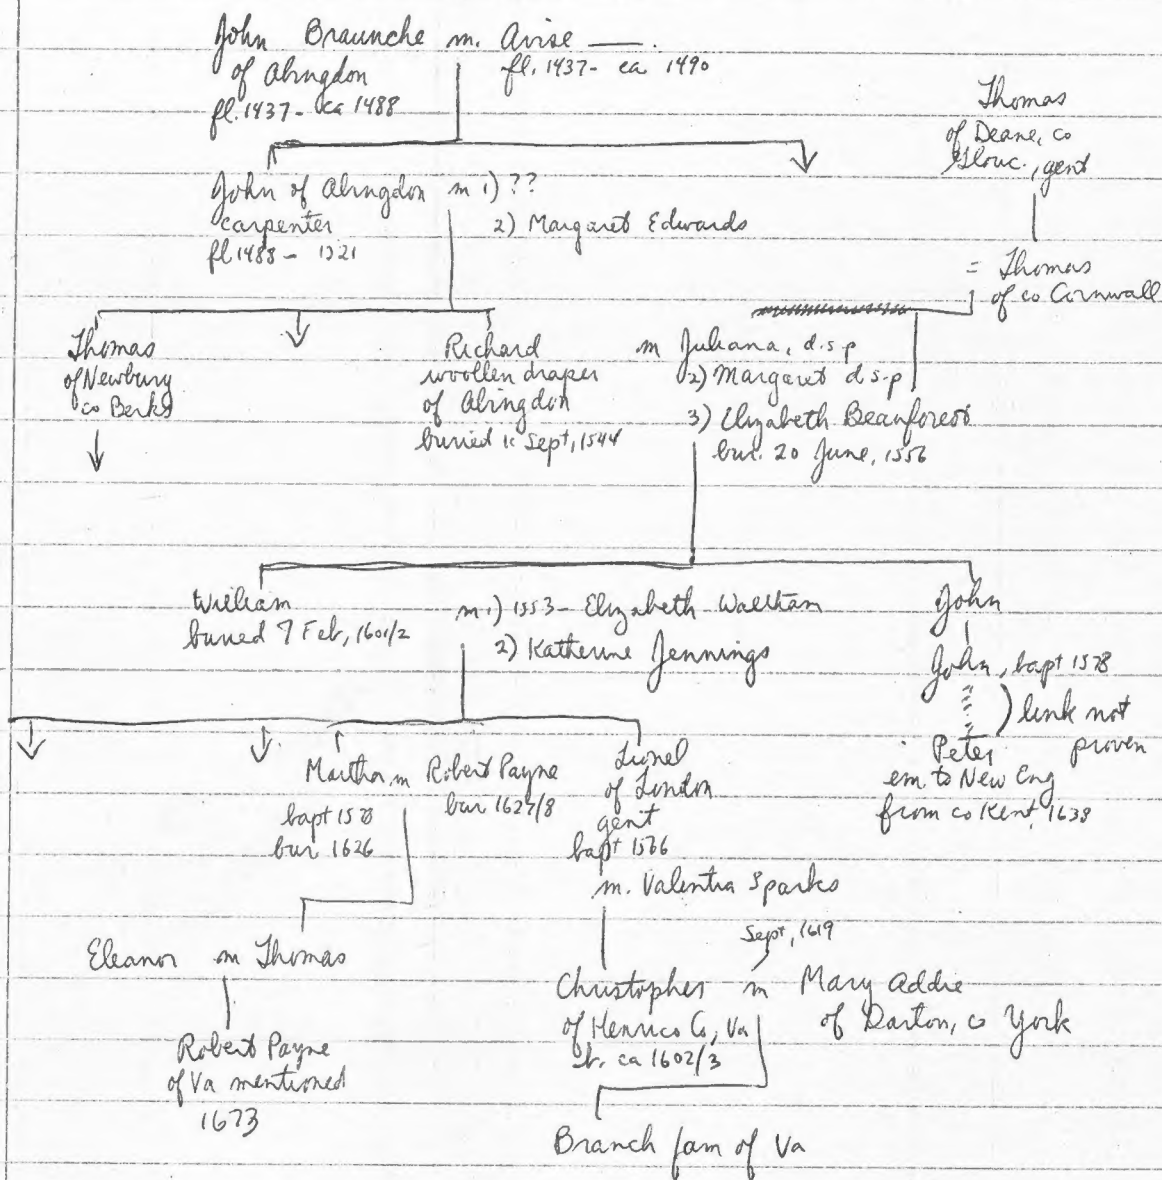 John Braunche m. Avise —.
of Abingdon fl. 1437- ca 1490
fl. 1437- ca 1488
Thomas
of Deane, co
Glouc., gent
John of Abingdon m 1) ??
carpenter 2) Margaret Edwards
fl 1488 - 1521
= Thomas
of co Cornwall
Thomas
of Newbury
co Berks
Richard
woollen draper
of Abingdon
buried Sept, 1544
m Juliana, d.s.p
2) Margaret d s-p
3) Elizabeth Beauforest
bur. 20 June, 1556
William
buried 7 Feb, 1601/2
m 1) 1553- Elizabeth Waltham
2) Katherine Jennings
John
John, bapt 1578
) link not
proven
Peter
em to New Eng
from co Kent, 1638
Martha m Robert Payne
bapt bur 1627/8
bur 1626
Lionel
of London
gent
bapt 1566
m. Valentia Sparks
Eleanor m Thomas
Robert Payne
of Va mentioned
1673
Sept, 1619
Christopher m Mary Addie
of Henrico Co, Va of Darton, co York
b. ca 1602/3
Branch fam of Va